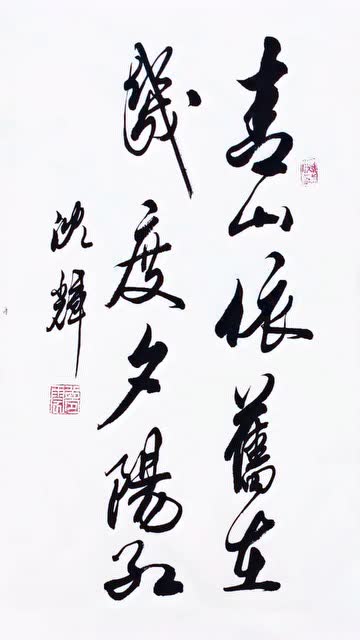 青山依舊在
幾度夕陽紅
沈輝